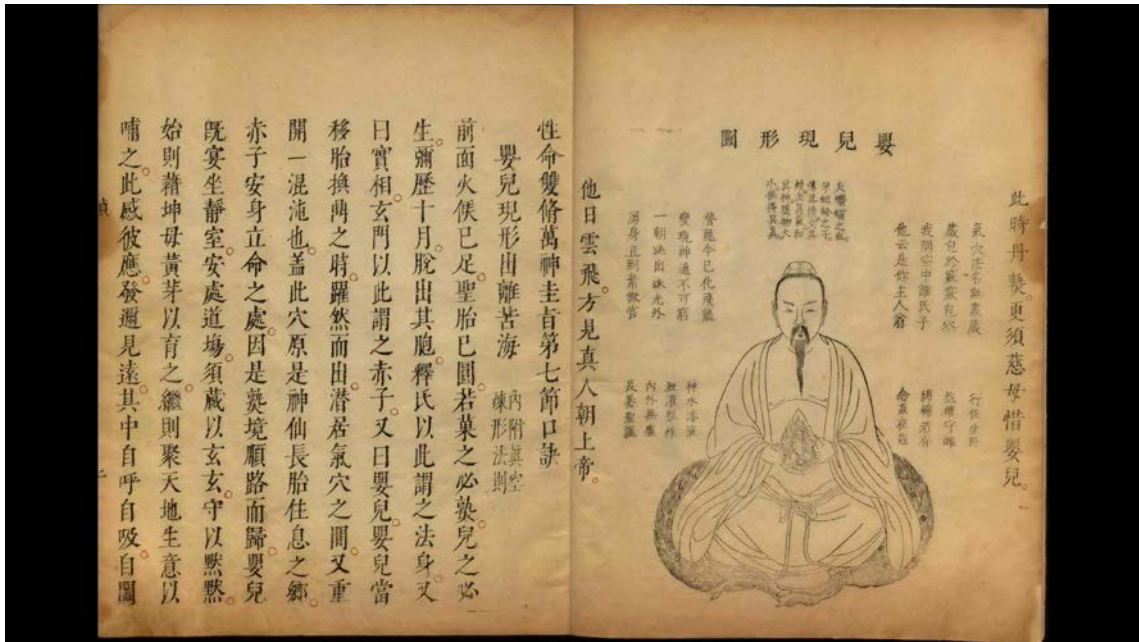 嬰兒現形圖
此時丹熟。更須慈母惜嬰兒。
氣穴法名無盡藏
藏包於竅竅包空
我問空中誰氏子
他云是你主人翁
行住坐卧
抱雄守雌
綿綿若存
念茲在茲
孕螟蛉之子
傳其情交其
精混其氣和
其神隨物大
小俱得其真
潛龍今已化飛龍
變現神通不可窮
一朝跳出珠光外
湧身直到紫微宮
神水
根株
內外無塵
長養聖軀
他日雲飛。方見真人朝上帝。
性命雙脩萬神圭旨第七節口訣
嬰兒現形出離苦海 內附真空
煉形法則
前面火候已足。聖胎已圓。若菓之必熟。兒之必
生。彌歷十月。脫出其胞。釋氏以此謂之法身。又
曰實相。玄門以此謂之赤子。又曰嬰兒。嬰兒當
移胎換鼎之時。躍然而出。潛居氣穴之間。又重
開一混沌也。盖此穴原是神仙長胎住息之鄉。
赤子安身立命之處。因是熟境。順路而歸。嬰兒
既宴坐靜室。安處道場。須藏以玄玄。守以默默。
始則藉坤母黃芽以育之。繼則聚天地生意以
哺之。此感彼應。發邇見遠。其中自呼自吸。自闔